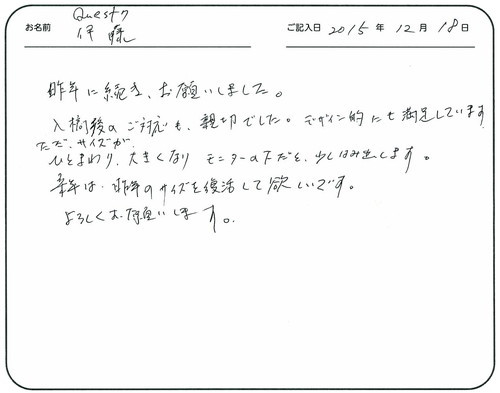 お名前 Quest7 伊藤
ご記入日 2015 年 12 月 18 日
昨年に続き、お願いしました。
入稿後のご対応も、親切でした。デザイン的にも満足しています
ただ、サイズが、
ひとまわり、大きくなり モニターの下だと、少しはみ出します。
来年は、昨年のサイズを復活して欲しいです。
よろしくお願いします。